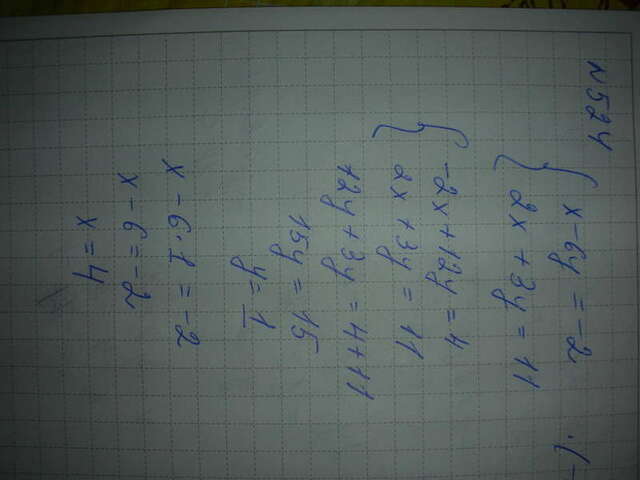 N 524
{ x - 6y = -2 ·(-
{ 2x + 3y = 11
{ -2x + 12y = 4
{ 2x + 3y = 11
12y + 3y = 4 + 11
15y = 15
y = 1
x - 6·1 = -2
x - 6 = -2
x = 4